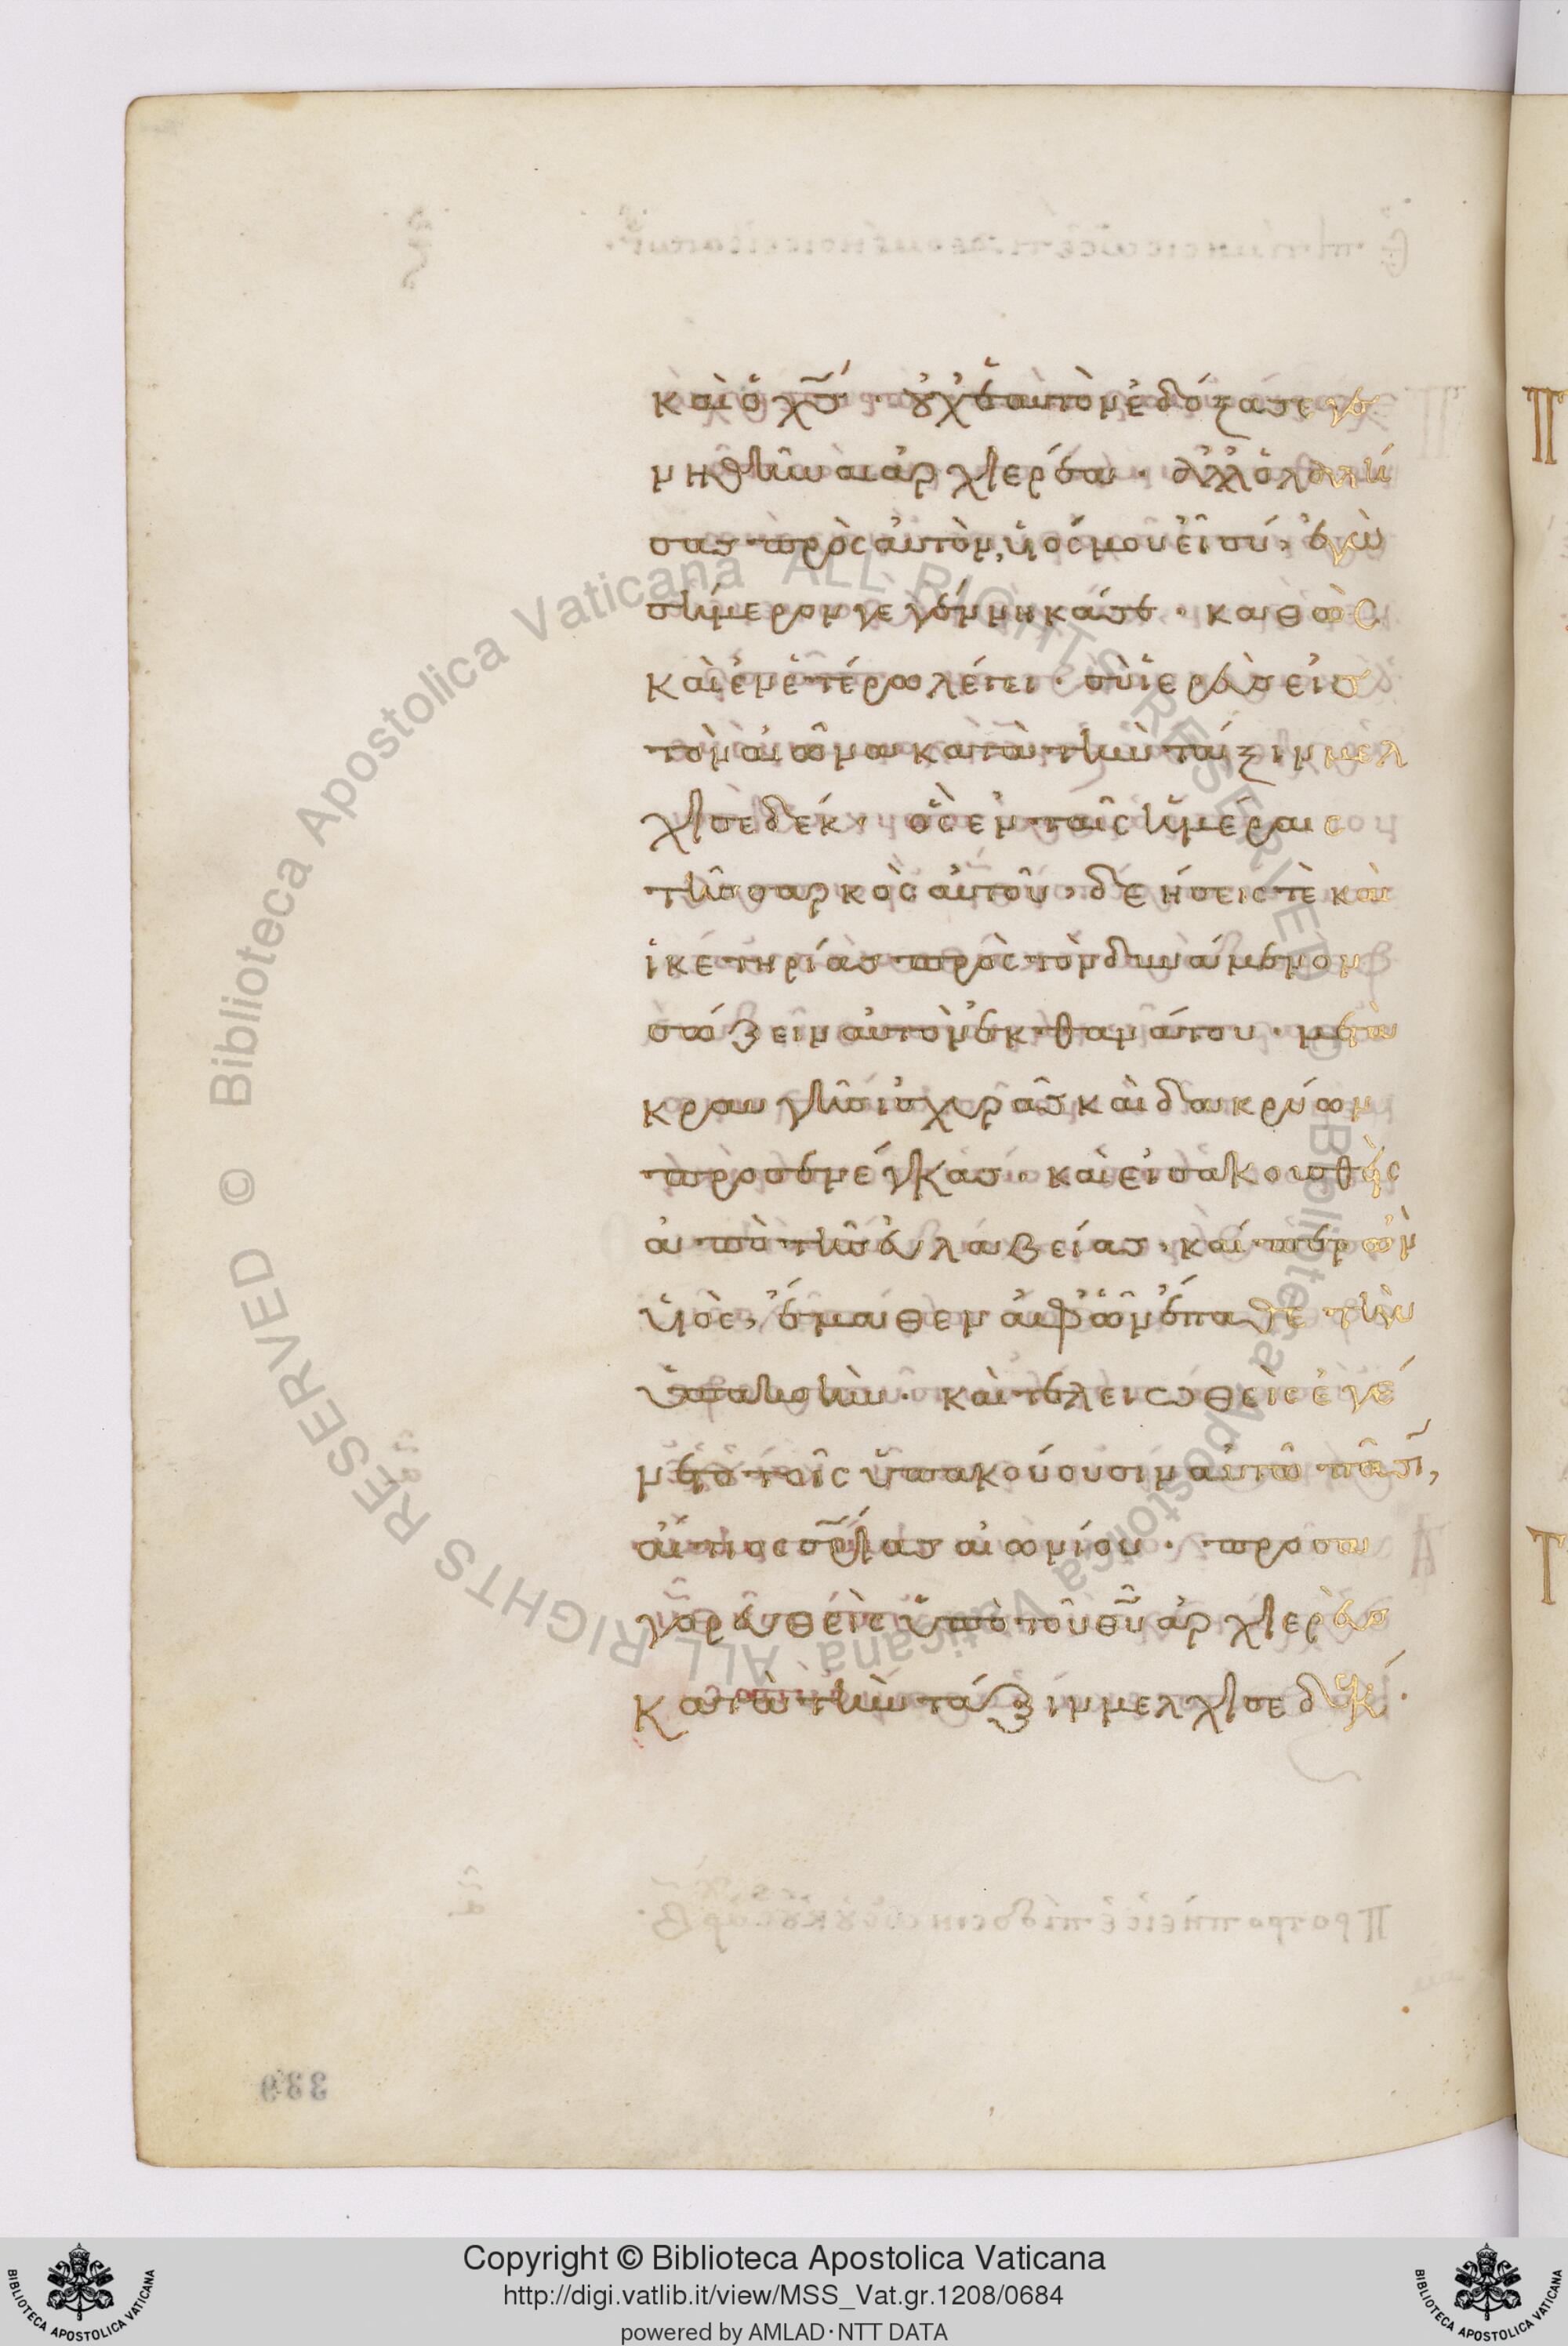 καὶ ὁ χ̅ς̅· οὐχ ἑαυτὸν ἐδόξασε γε
νηθῆναι ἀρχιερέα· ἀλλ' ὁ λαλή
σας πρὸς αὐτὸν, υἱός μου εἶ σύ, ἐγὼ
σήμερον γεγέννηκά σε· καθὼς
καὶ ἐν ἑτέρω λέγει· σὺ ἱερεὺς εἰς
τὸν αἰῶνα κατὰ τὴν τάξιν μελ
χισεδέκ· ὃς ἐν ταῖς ἡμέραις
τῆς σαρκὸς αὐτοῦ, δεήσεις τὲ καὶ
ἱκετηρίας πρὸς τὸν δυνάμενον
σώζειν αὐτὸν ἐκ θανάτου· μετὰ
κραυγῆς ἰσχυρᾶς καὶ δακρύων
προσενέγκας· καὶ εἰσακουσθεὶς
ἀπὸ τῆς εὐλαβείας· καίπερ ὢν
υἱὸς, ἔμαθεν ἀφ' ὧν ἔπαθε τὴν
ὑπακοὴν· καὶ τελειωθεὶς ἐγέ
νετο τοῖς ὑπακούουσιν αὐτῶ πᾶσι,
αἴτιος σ̅ρ̅ίας αἰωνίου· προσα
γορευθεὶς ὑπὸ τοῦ θ̅υ̅ ἀρχιερεὺς
κατὰ τὴν τάξιν μελχισεδέκ·
339
Biblioteca Apostolica Vaticana ALL RIGHTS RESERVED ©
Biblioteca Apostolica Vaticana ALL RIGHTS RESERVED ©
Copyright © Biblioteca Apostolica Vaticana
http://digi.vatlib.it/view/MSS_Vat.gr.1208/0684
powered by AMLAD·NTT DATA
BIBLIOTECA APOSTOLICA VATICANA
BIBLIOTECA APOSTOLICA VATICANA